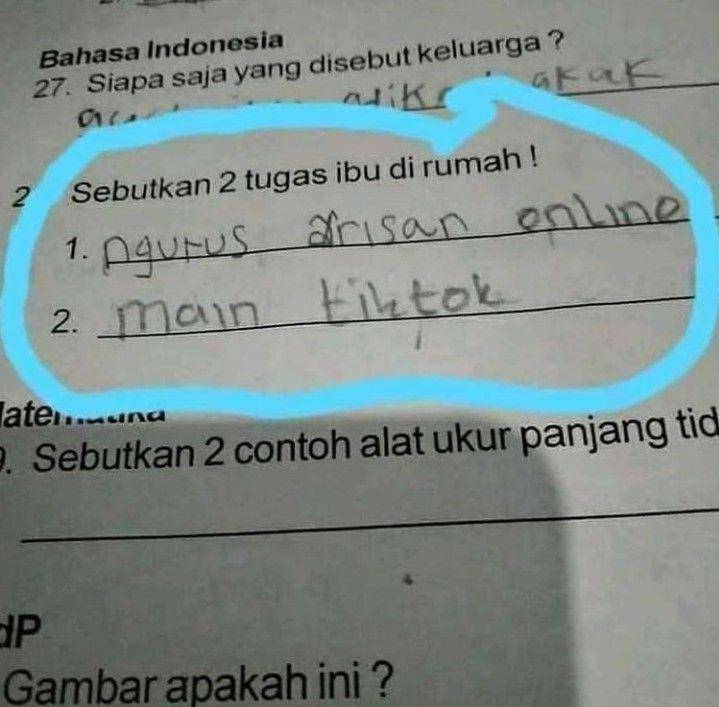 Bahasa Indonesia
27. Siapa saja yang disebut keluarga ?
adik akak
2 Sebutkan 2 tugas ibu di rumah !
1. ngurus arisan online
2. main tiktok
Sebutkan 2 contoh alat ukur panjang tid
dP
Gambar apakah ini ?